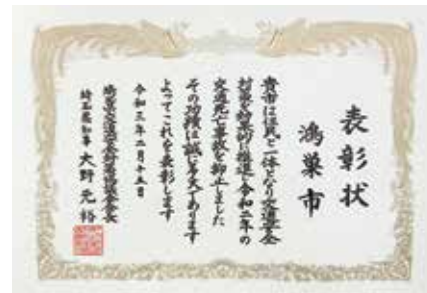 表彰状
鴻巣市
貴市は住民と一体となり交通安全
対策を効果的に推進し令和二年の
交通死亡事故を抑止しました
その功績は誠に多大であります
よってこれを表彰します
令和三年二月十五日
埼玉県交通安全対策協議会会長
埼玉県知事 大野元裕